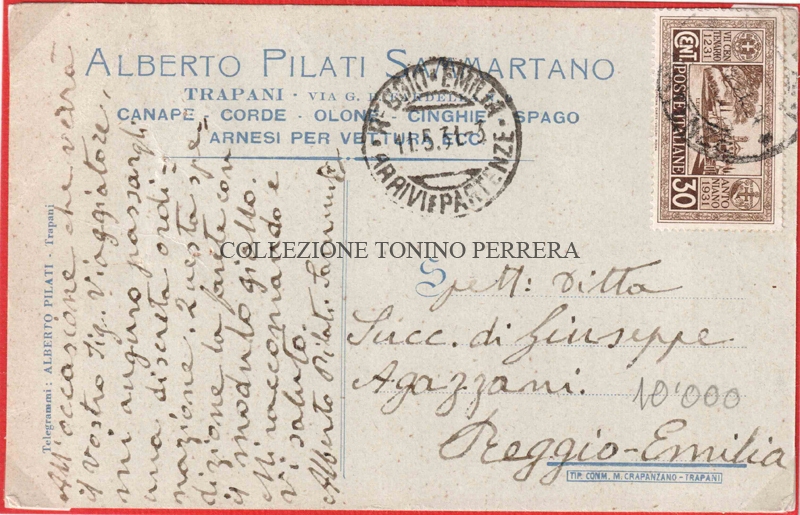 ALBERTO PILATI SAMMARTANO
TRAPANI - VIA G. B.
CANAPE - CORDE - OLONE - CINGHIE - SPAGO
ARNESI PER VETTURA, ECC.
REGGIO-EMILIA
11.5.31-3
ARRIVI E PARTENZE
VII CENTENARIO
1231
CENT. POSTE ITALIANE 30
ANTONIANO
1931
Telegrammi: ALBERTO PILATI - Trapani
All'occasione che verrà
il vostro Sig. Viaggiatore,
mi auguro passargli
una discreta ordi=
nazione. Questa spe=
dizione la farete con
il modulo giallo.
Mi raccomando e
vi saluto.
Alberto Pilati Sammart
COLLEZIONE TONINO PERRERA
Spett: Ditta
Succ. di Giuseppe
Agazzani.
10'000
Reggio-Emilia
TIP. COMM. M. CRAPANZANO - TRAPANI